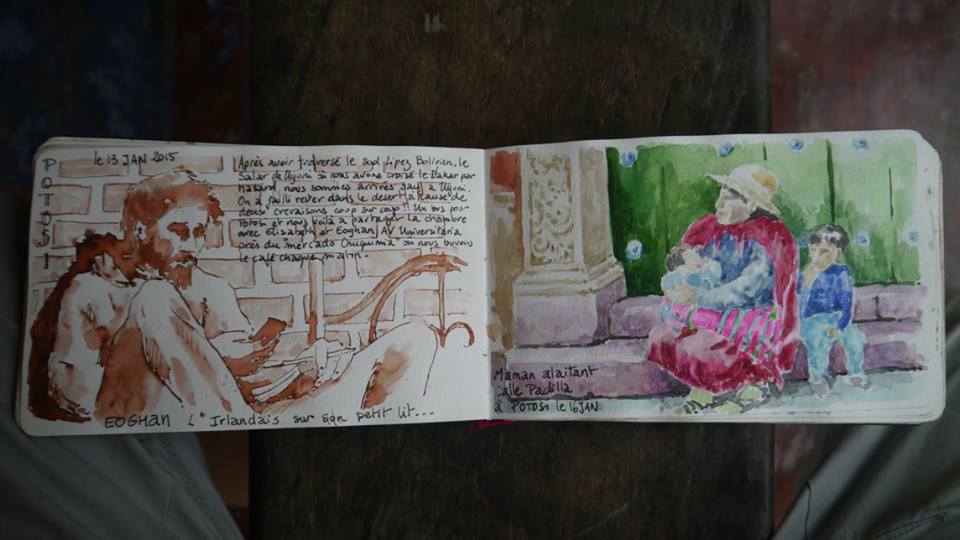 POTOSI
le 13 JAN 2015
Après avoir traversé le sud Lipez Bolivien, le
Salar de Uyuni où nous avons croisé le Dakar par
hasard nous sommes arrivés à Uyuni.
On a failli rester dans le désert à cause de
deux crevaisons coup sur coup! Un bus pour
Potosi et nous voilà à partager la chambre
avec Elisabeth et Eoghan, AV Universitaria
près du mercado Chuquimia où nous buvons
le café chaque matin.
EOGHAN L'Irlandais sur son petit lit...
Maman alaitant
calle Padilla
à POTOSI le 16 JAN